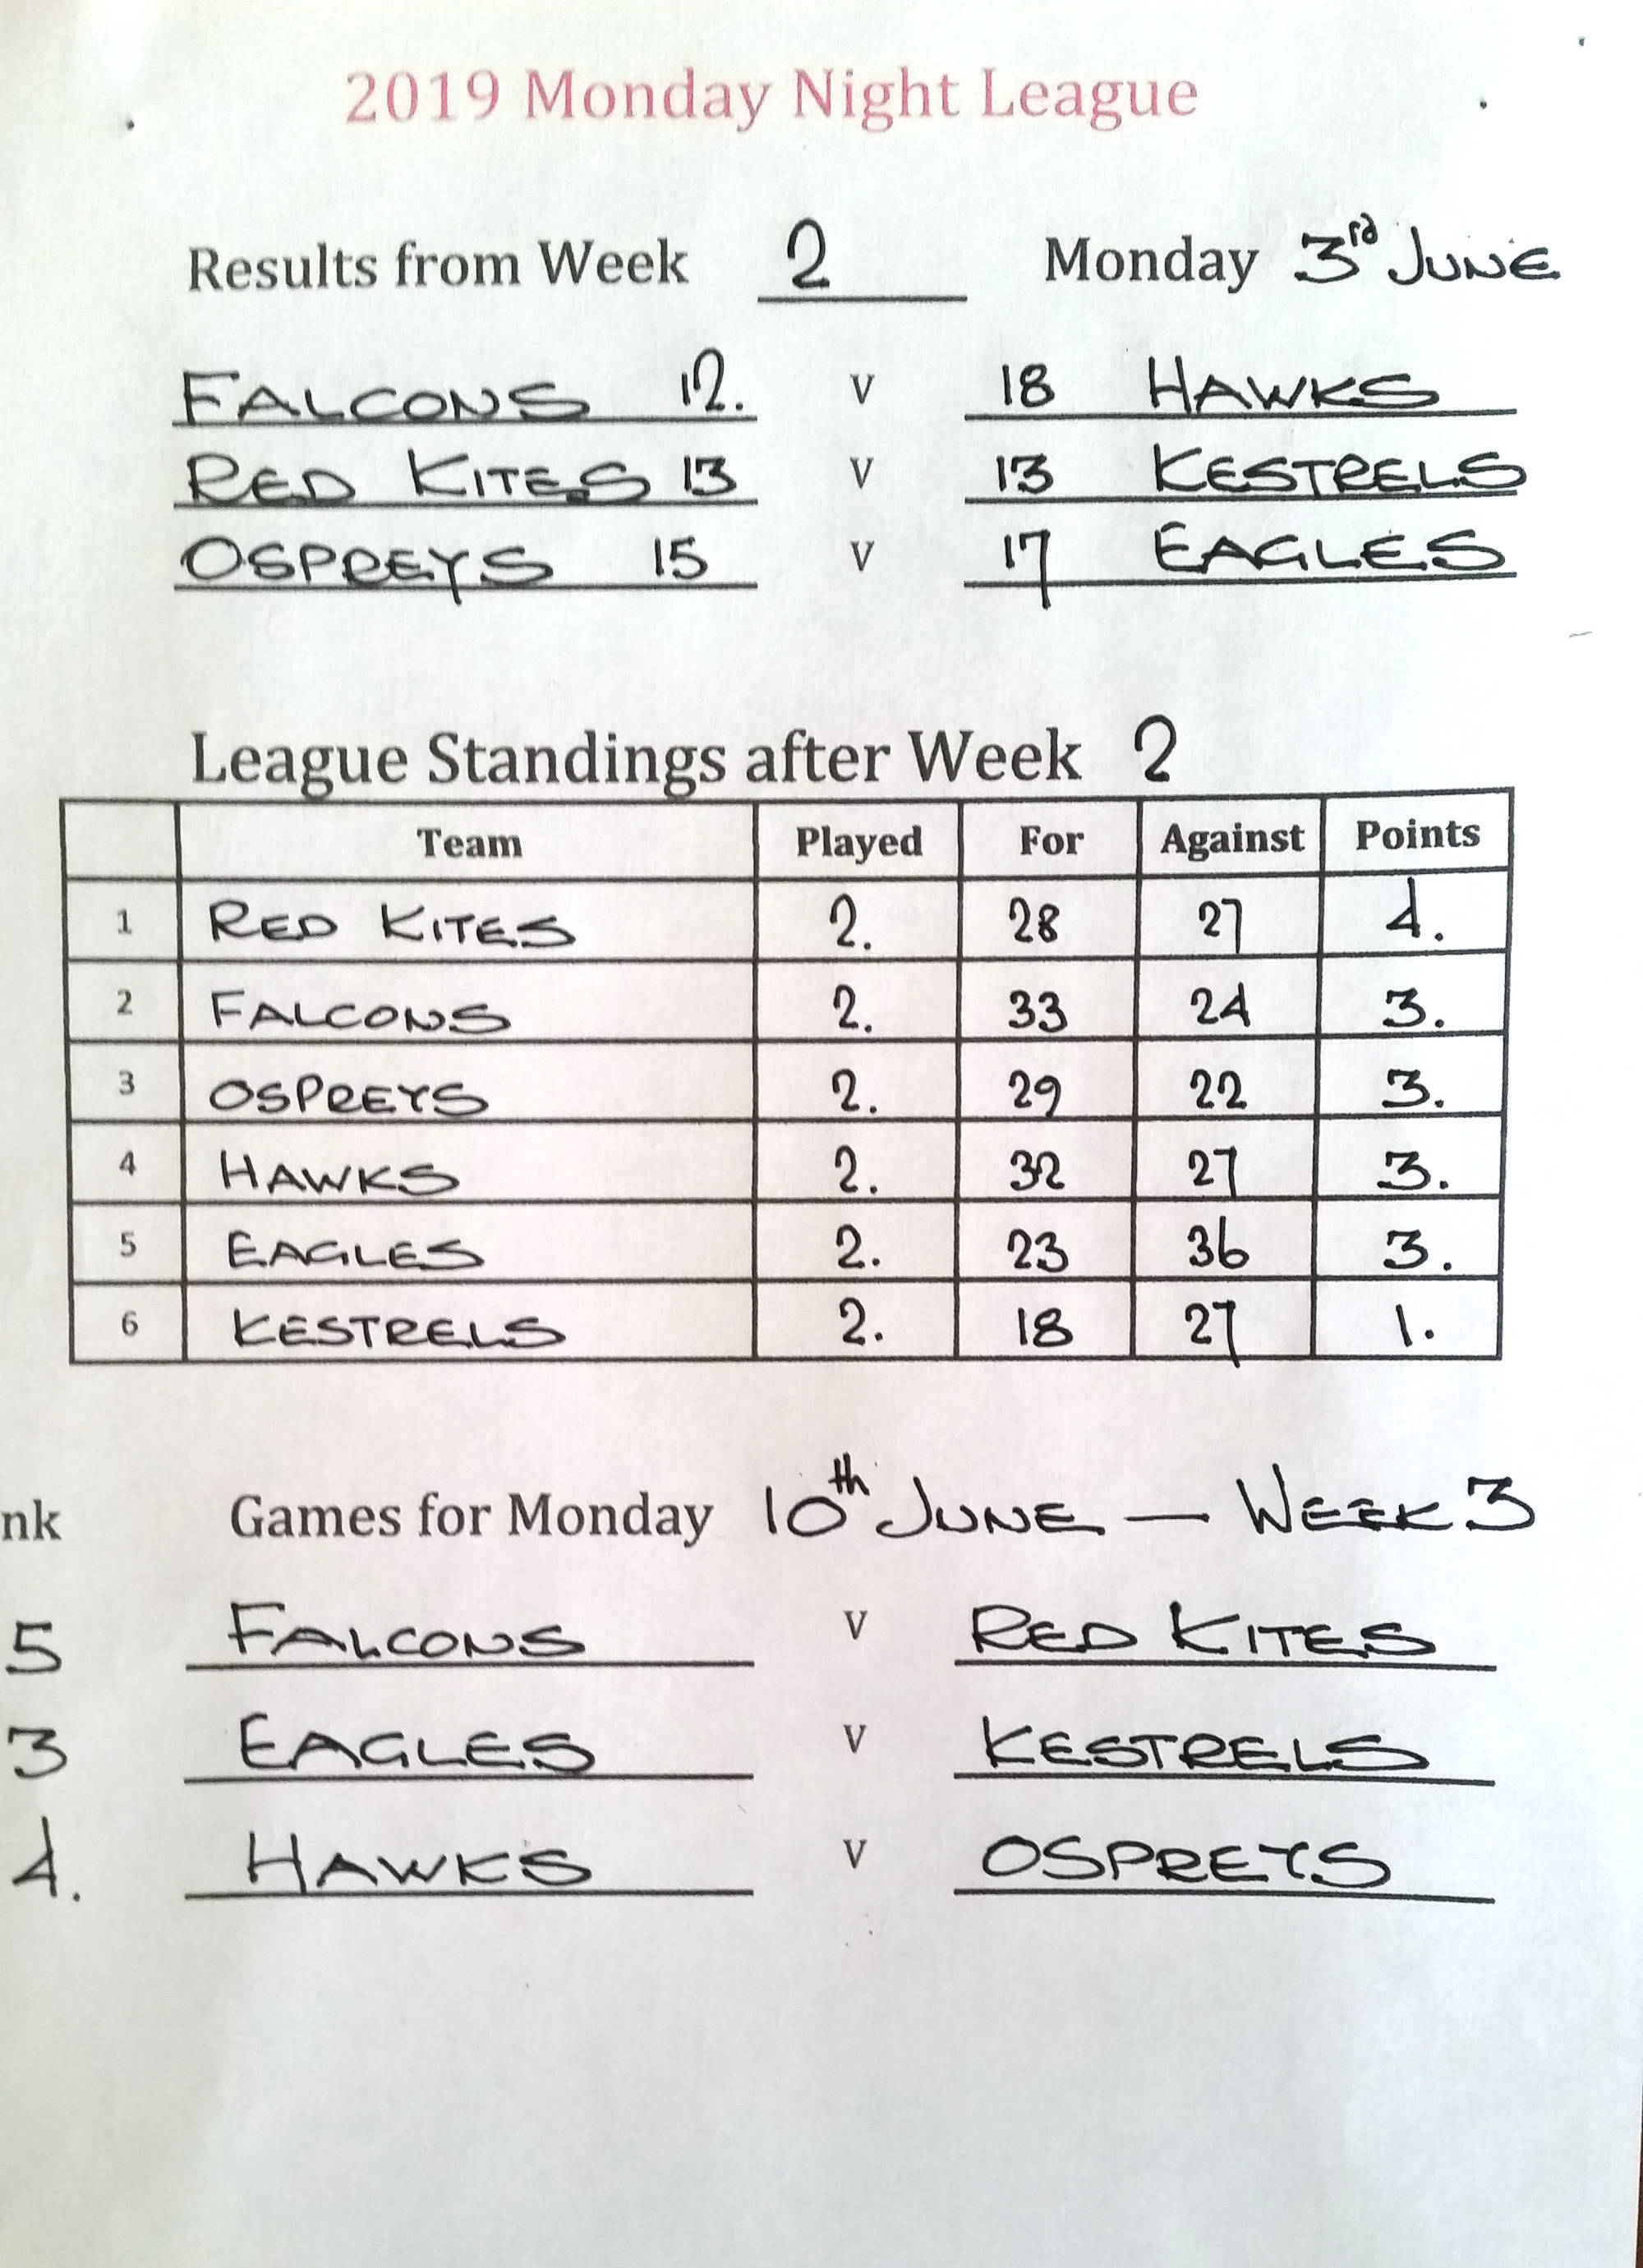 2019 Monday Night League
Results from Week 2 Monday 3rd JUNE
FALCONS 12. v 18 HAWKS
RED KITES 13 v 13 KESTRELS
OSPREYS 15 v 17 EAGLES
League Standings after Week 2
Team Played For Against Points
1 RED KITES 2. 28 27 4.
2 FALCONS 2. 33 24 3.
3 OSPREYS 2. 29 22 3.
4 HAWKS 2. 32 27 3.
5 EAGLES 2. 23 36 3.
6 KESTRELS 2. 18 27 1.
nk Games for Monday 10th JUNE — WEEK 3
5 FALCONS v RED KITES
3 EAGLES v KESTRELS
4. HAWKS v OSPREYS